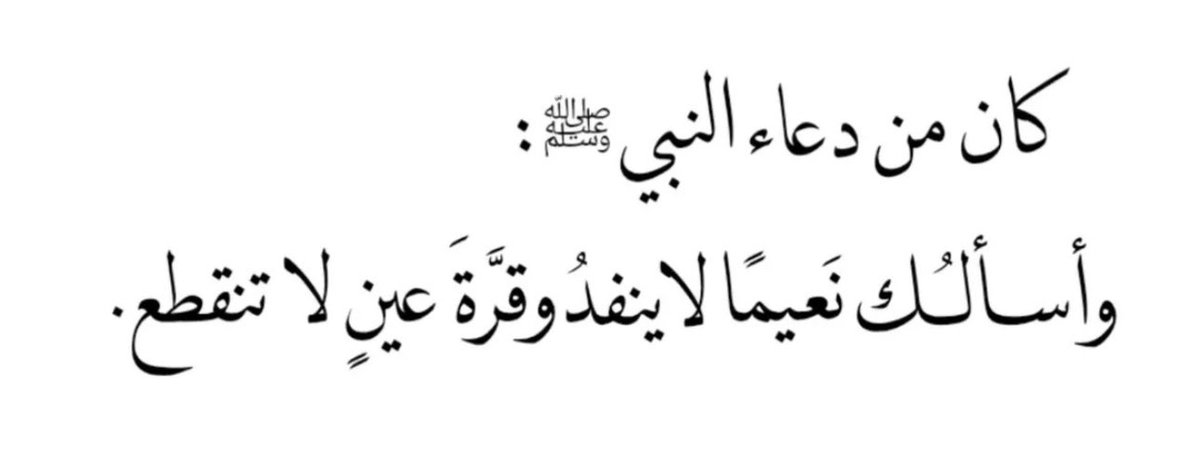 كان من دعاء النبي ﷺ :
وأسألُك نَعيمًا لا ينفدُ وقرَّةَ عينٍ لا تنقطع.